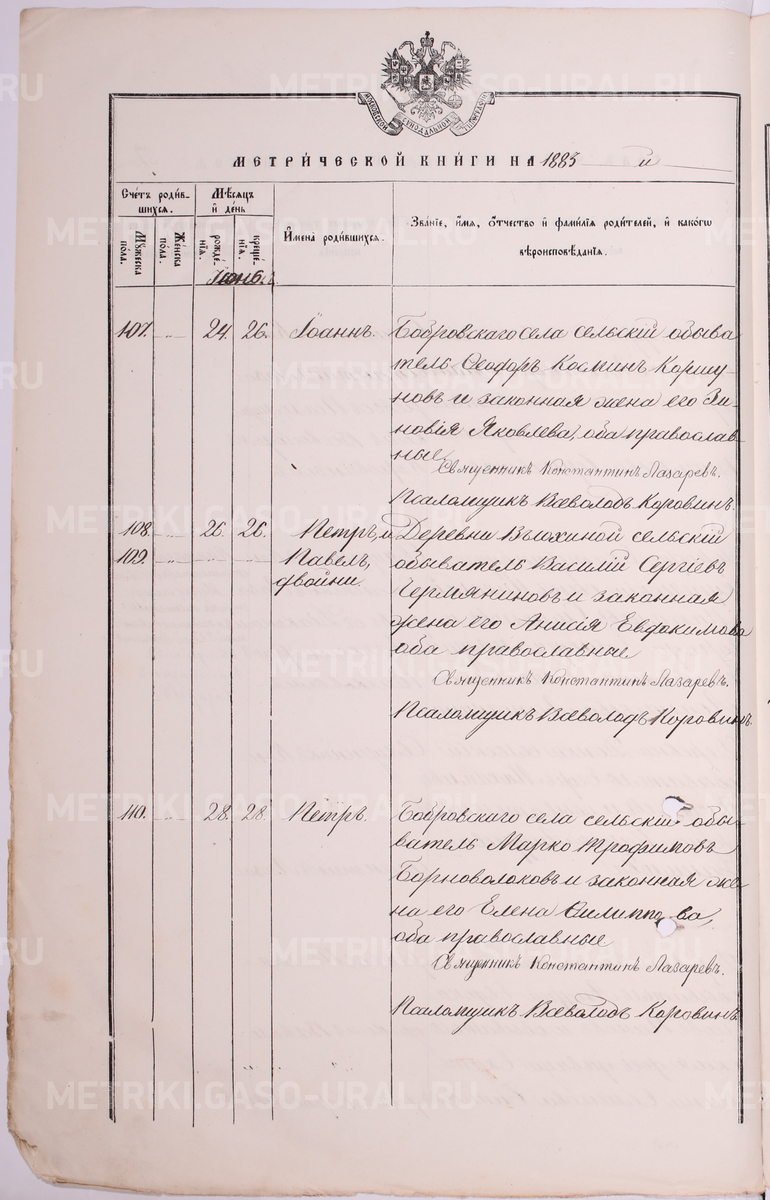 МОСКОВСКОЙ СѴНОДАЛЬНОЙ ТИПОГРАФІИ
МЕТРИ́ЧЕСКОЙ КНИ́ГИ НА 1883 й
Сче́тъ роди́в-
шихся.
Мѣ́сяцъ
и҆ де́нь
Му́жеска
по́ла.
Же́нска
по́ла.
рожде́-
нїя.
креще́-
нїя.
И҆мена̀ роди́вшихся.
Зва́нїе, и҆́мя, ѻ҆́тчество и҆ фами́лїя роди́телей, и҆ како́гѡ
вѣроисповѣ́данїя.
Іюнь.
107. „ 24. 26. Іоаннъ. Бобровскаго села сельскій обыва
тель Ѳеодоръ Космин Коршу-
новъ и законная жена его Зи-
новія Яковлева, оба православ-
ные
Священникъ Константинъ Лазаревъ.
Псаломщикъ Всеволодъ Коровинъ.
108. „ 26. 26. Петръ, и Деревни Вьюхиной сельскій
109. „ „ „ Павелъ, обыватель Василій Сергіевъ
двойни. Чермяниновъ и законная
жена его Анисія Евдокимова
оба православные
Священникъ Константинъ Лазаревъ.
Псаломщикъ Всеволодъ Коровинъ.
110. „ 28. 28. Петръ. Бобровскаго села сельскій обы-
ватель Марко Трофимовъ
Борноволоковъ и законная же-
на его Елена Филиппова,
оба православные
Священникъ Константинъ Лазаревъ.
Псаломщикъ Всеволодъ Коровинъ.
METRIKI.GASO-URAL.RU